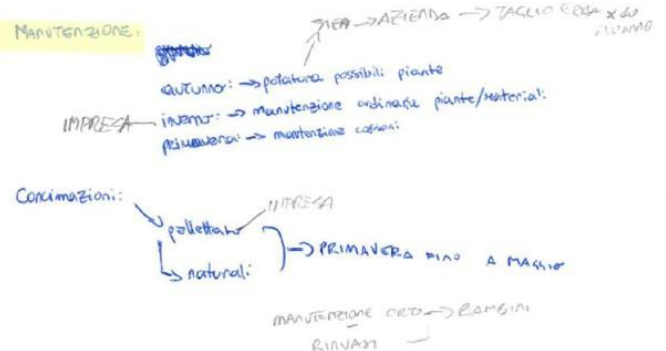 MANUTENZIONE:
→ AZIENDA → TAGLIO ERBA
AUTUNNO: → potatura possibili piante
IMPRESA
inverno: → manutenzione ordinaria piante/materiali
primavera: → manutenzione cassoni
Concimazioni:
IMPRESA
pellettato
→ naturali
→ PRIMAVERA FINO A MAGGIO
MANUTENZIONE ORTO → BAMBINI
RINVASI